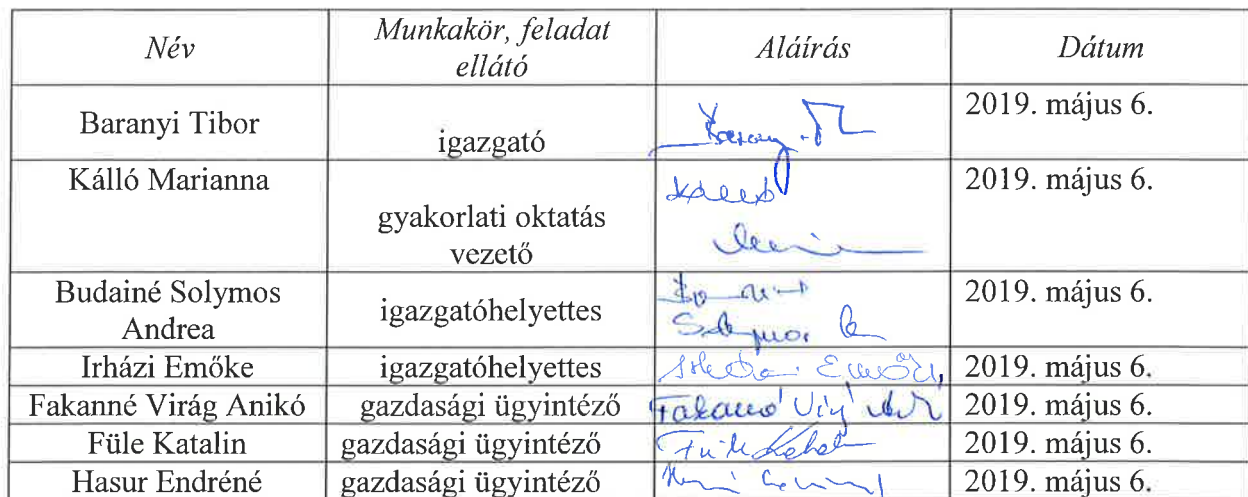 Név Munkakör, feladat Aláírás Dátum
ellátó
Baranyi Tibor igazgató 2019. május 6.
Kálló Marianna gyakorlati oktatás 2019. május 6.
vezető
Budainé Solymos igazgatóhelyettes 2019. május 6.
Andrea
Irházi Emőke igazgatóhelyettes 2019. május 6.
Fakanné Virág Anikó gazdasági ügyintéző 2019. május 6.
Füle Katalin gazdasági ügyintéző 2019. május 6.
Hasur Endréné gazdasági ügyintéző 2019. május 6.